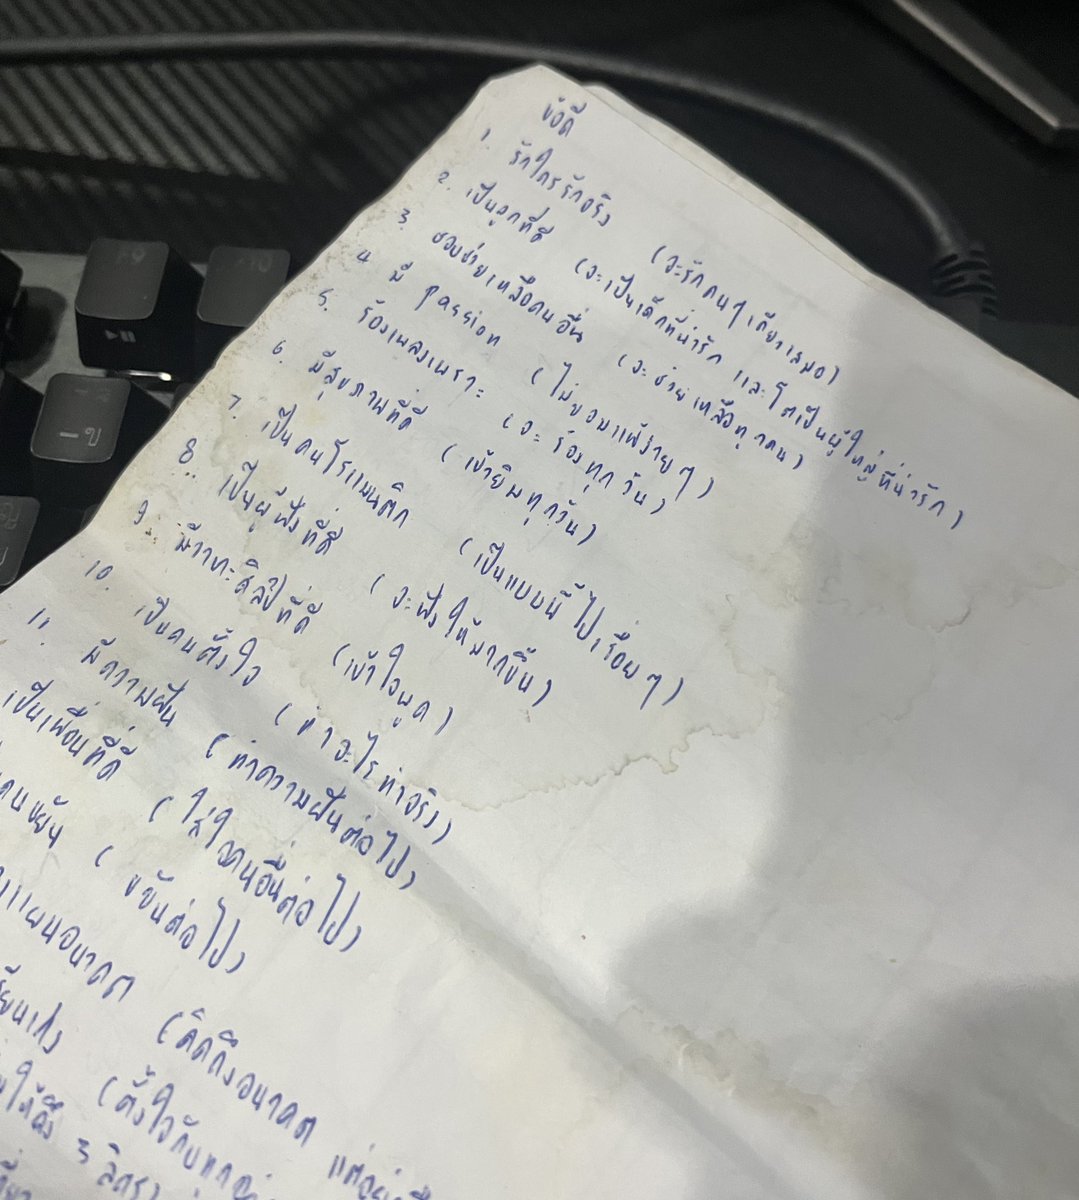 ข้อดี
1. รักใครรักจริง (จะรักคนๆเดียวเสมอ)
2. เป็นลูกที่ดี (จะเป็นเด็กที่น่ารัก และโตเป็นผู้ใหญ่ที่น่ารัก)
3. ชอบช่วยเหลือคนอื่น (จะช่วยเหลือทุกคน)
4. มี passion (ไม่ยอมแพ้ง่ายๆ)
5. ร้องเพลงเพราะ (จะร้องทุกวัน)
6. มีสุขภาพที่ดี (เข้ายิมทุกวัน)
7. เป็นคนโรแมนติก (เป็นแบบนี้ไปเรื่อยๆ)
8. เป็นผู้ฟังที่ดี (จะฟังให้มากขึ้น)
9. มีวาทะศิลป์ที่ดี (เข้าใจพูด)
10. เป็นคนตั้งใจ (ทำอะไรทำจริง)
11. มีความฝัน (ทำความฝันต่อไป)
เป็นเพื่อนที่ดี (ใส่ใจคนอื่นต่อไป)
คนขยัน (ขยันต่อไป)
แผนอนาคต (คิดถึงอนาคต
เรียนเก่ง (ตั้งใจกับทุก
ให้ถึง 3 ลิตร)